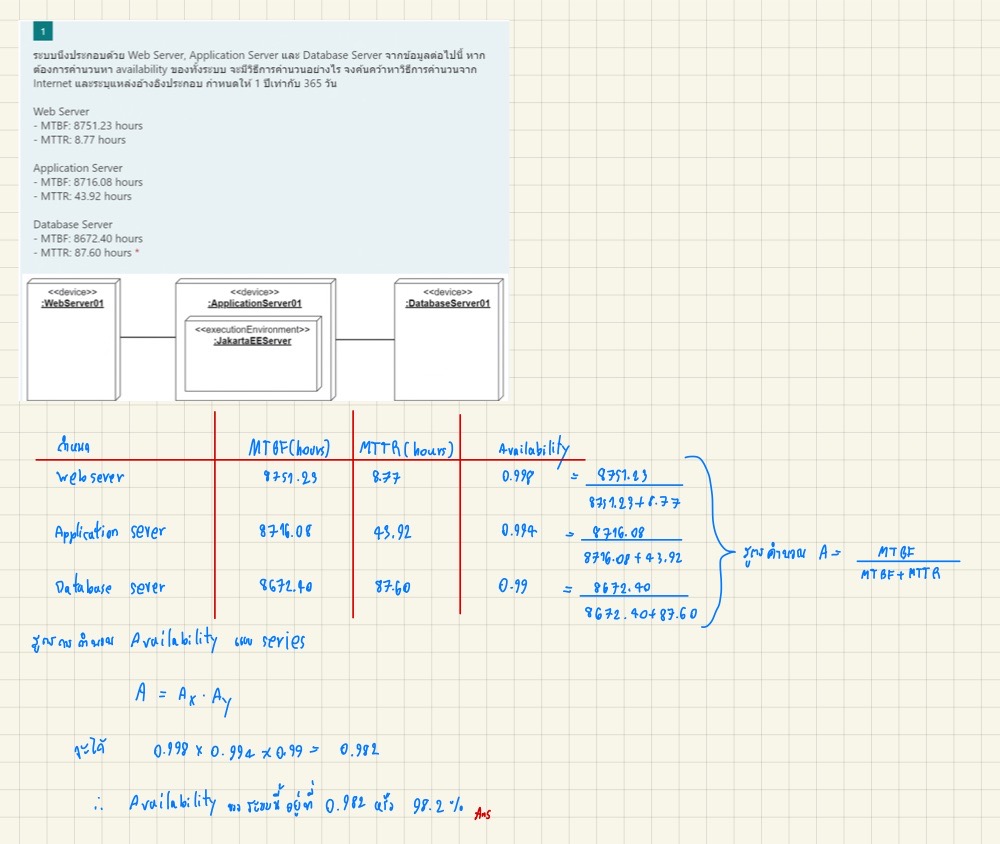 1
ระบบนึงประกอบด้วย Web Server, Application Server และ Database Server จากข้อมูลต่อไปนี้ หาก
ต้องการคำนวนหา availability ของทั้งระบบ จะมีวิธีการคำนวนอย่างไร จงค้นคว้าหาวิธีการคำนวนจาก
Internet และระบุแหล่งอ้างอิงประกอบ กำหนดให้ 1 ปีเท่ากับ 365 วัน
Web Server
- MTBF: 8751.23 hours
- MTTR: 8.77 hours
Application Server
- MTBF: 8716.08 hours
- MTTR: 43.92 hours
Database Server
- MTBF: 8672.40 hours
- MTTR: 87.60 hours *
<<device>>
:WebServer01
<<device>>
:ApplicationServer01
<<executionEnvironment>>
:JakartaEEServer
<<device>>
:DatabaseServer01
MTBF(hours) MTTR(hours) Availability
Web sever 8751.23 8.77 0.998 = 8751.23
8751.23+8.77
Application sever 8716.08 43.92 0.994 = 8716.08
8716.08+43.92
Database sever 8672.40 87.60 0.99 = 8672.40
8672.40+87.60
สูตรคำนวณ A = MTBF
MTBF+MTTR
สูตรการคำนวณ Availability แบบ series
A = Ax · Ay
จะได้ 0.998 × 0.994 × 0.99 = 0.982
∴ Availability ของระบบนี้ อยู่ที่ 0.982 หรือ 98.2 % Ans